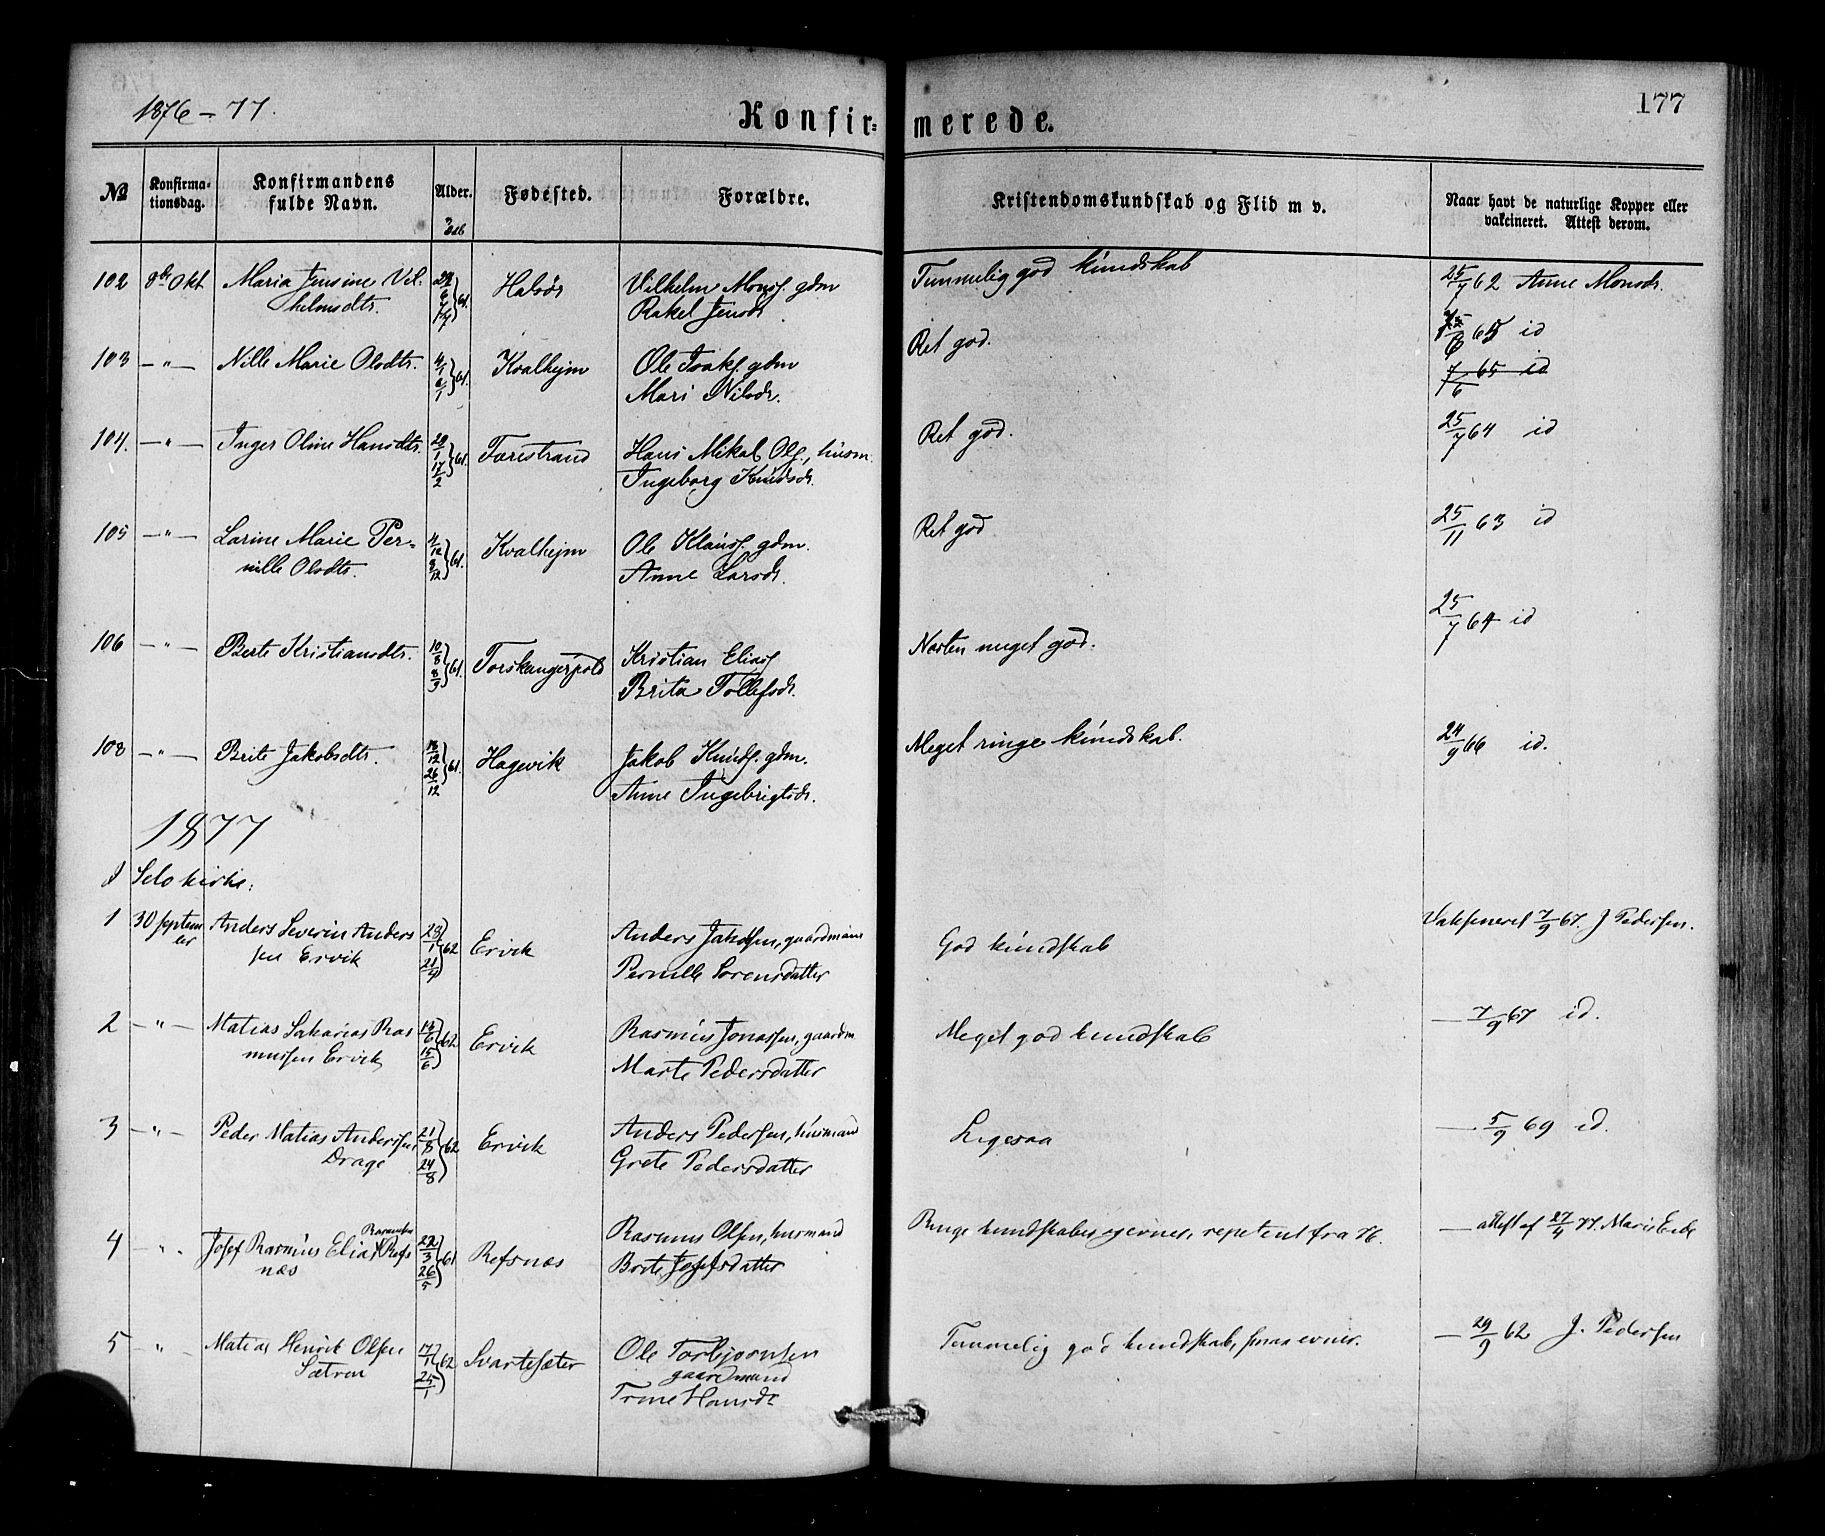 1876-77.
Konfir=
merede.
177
No
Konfirma-
tionsdag.
Konfirmandens
fulde Navn.
Alder.
Fødested.
Forældre.
Kristendomskundskab og Flid m v.
Naar havt de naturlige Kopper eller
vakcineret. Attest derom.
102 8de Okt Maria Jensine Vil-
helmsdtr. 61. Halsør Vilhelm Monss. gdm
Rakel Jensdr. Temmelig god kundskab 25/7 62 Anne Monsdr.
103 -"- Nille Marie Olsdtr. 4/1 6/1 61. Kvalhejm Ole Isaks. gdm
Mari Nilsdr. Ret god. 65 id
7/6 65 id
104. -"- Inger Oline Hansdtr. 29/1 17/2 61. Tarestrand Hans Mikal Ols., husm.
Ingeborg Knudsdr. Ret god. 25/7 64 id
105 -"- Larine Marie Per-
nille Olsdtr. 4/12 8/12 61. Kvalhejm Ole Klauss. gdm.
Anne Larsdr. Ret god 25/11 63 id
106 -"- Berte Kristiansdtr. 10/8 8/9 61. Torskangerpold Kristian Elias
Brita Tollefsdr. Næsten meget god. 25/7 64 id
108 -"- Brite Jakobsdtr. 18/12 26/12 61. Hagevik Jakob Knuds. gdm.
Anne Ingebrigtsdr. Meget ringe kundskab. 24/9 66 id.
1877
I Selo kirke:
1 30 septem
ber Anders Severin Anders
sen Ervik 23/1 21/4 62 Ervik Anders Jakobsen, gaardmand
Pernille Sorensdatter God kundskab Vaksineret 7/9 67. J Pedersen.
2 -"- Matias Sakarias Ras
mussen Ervik 13/6 15/6 62 Ervik Rasmus Jonassen, gaardm
Marte Pedersdatter Meget god kundskab - 7/9 67 id.
3 -"- Peder Matias Anderssen
Drage 21/8 24/8 62 Ervik Anders Pedersen, husmand
Grete Pedersdatter Ligesaa - 5/9 69 id.
4 -"- Josef Rasmus Elias Rasmussen Refs
næs 22/3 26/5 61 Refsnæs Rasmus Olsen, husmand
Brite Josefsdatter Ringe kundskaber, evner, repetent fra 76. - attest af 27/4 77. Marie Eide
5 " Matias Henrik Olsen
Sætren 17/1 25/1 62 Svartesæter Ole Torbjørnsen
gaardmand
Trine Hansdt Temmelig god kundskab, smaa evner. - 29/9 62 J. Pedersen